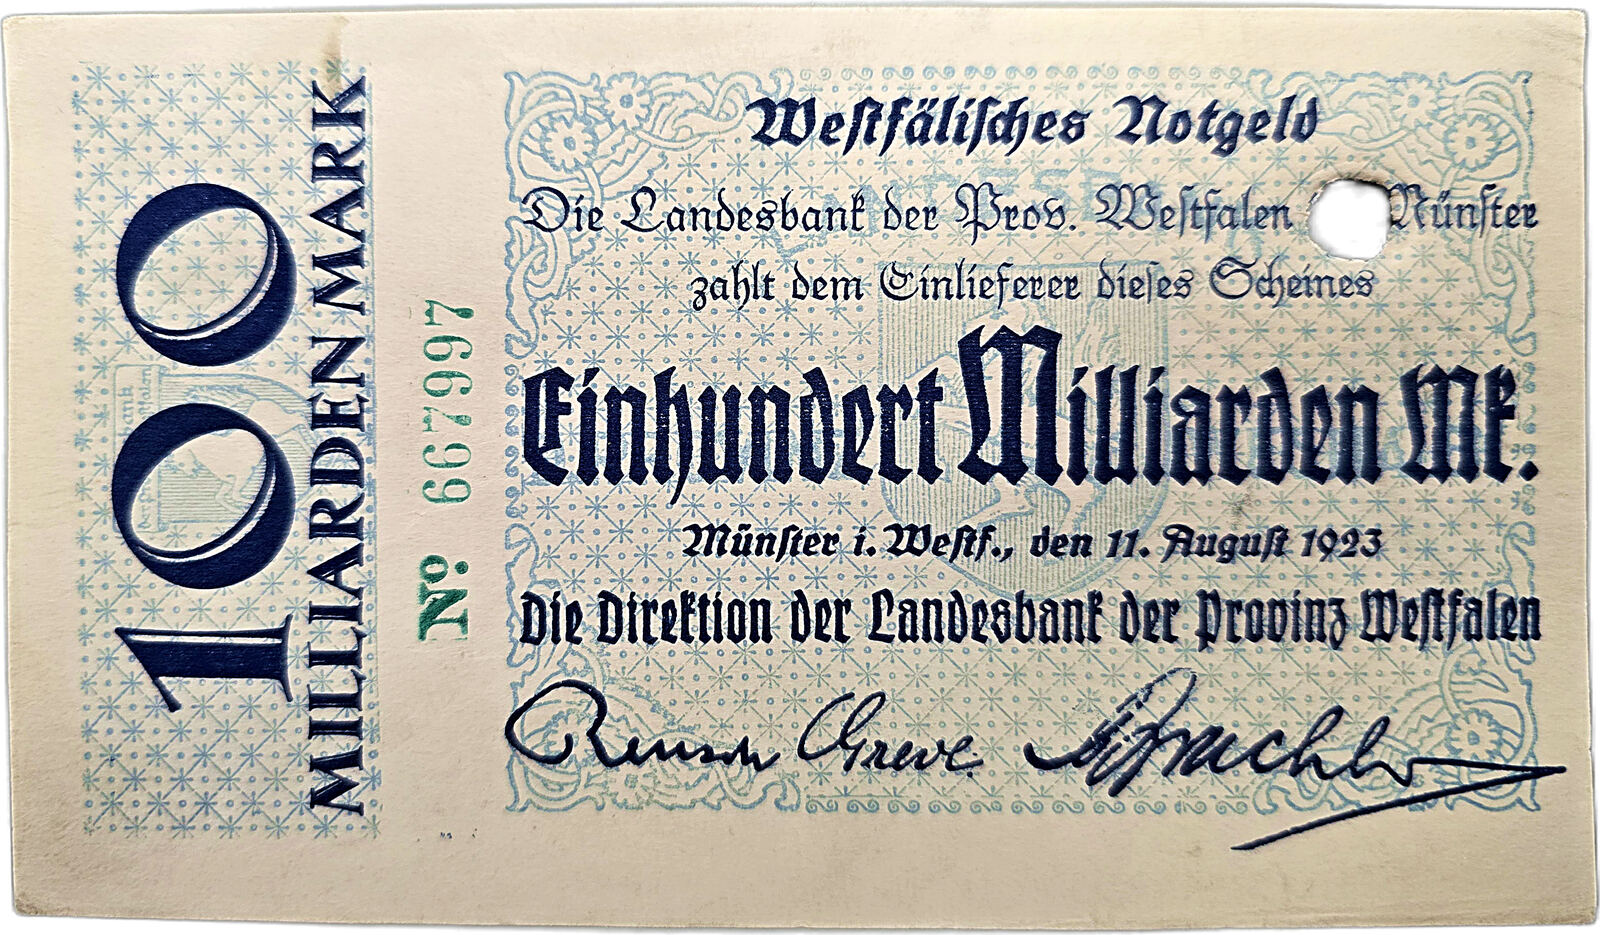 100
MILLIARDEN MARK
No. 667997
Westfälisches Notgeld
Die Landesbank der Prov. Westfalen Münster
zahlt dem Einlieferer dieses Scheines
Einhundert Milliarden Mk.
Münster i. Westf., den 11. August 1923
Die Direktion der Landesbank der Provinz Westfalen
Reusch Greve